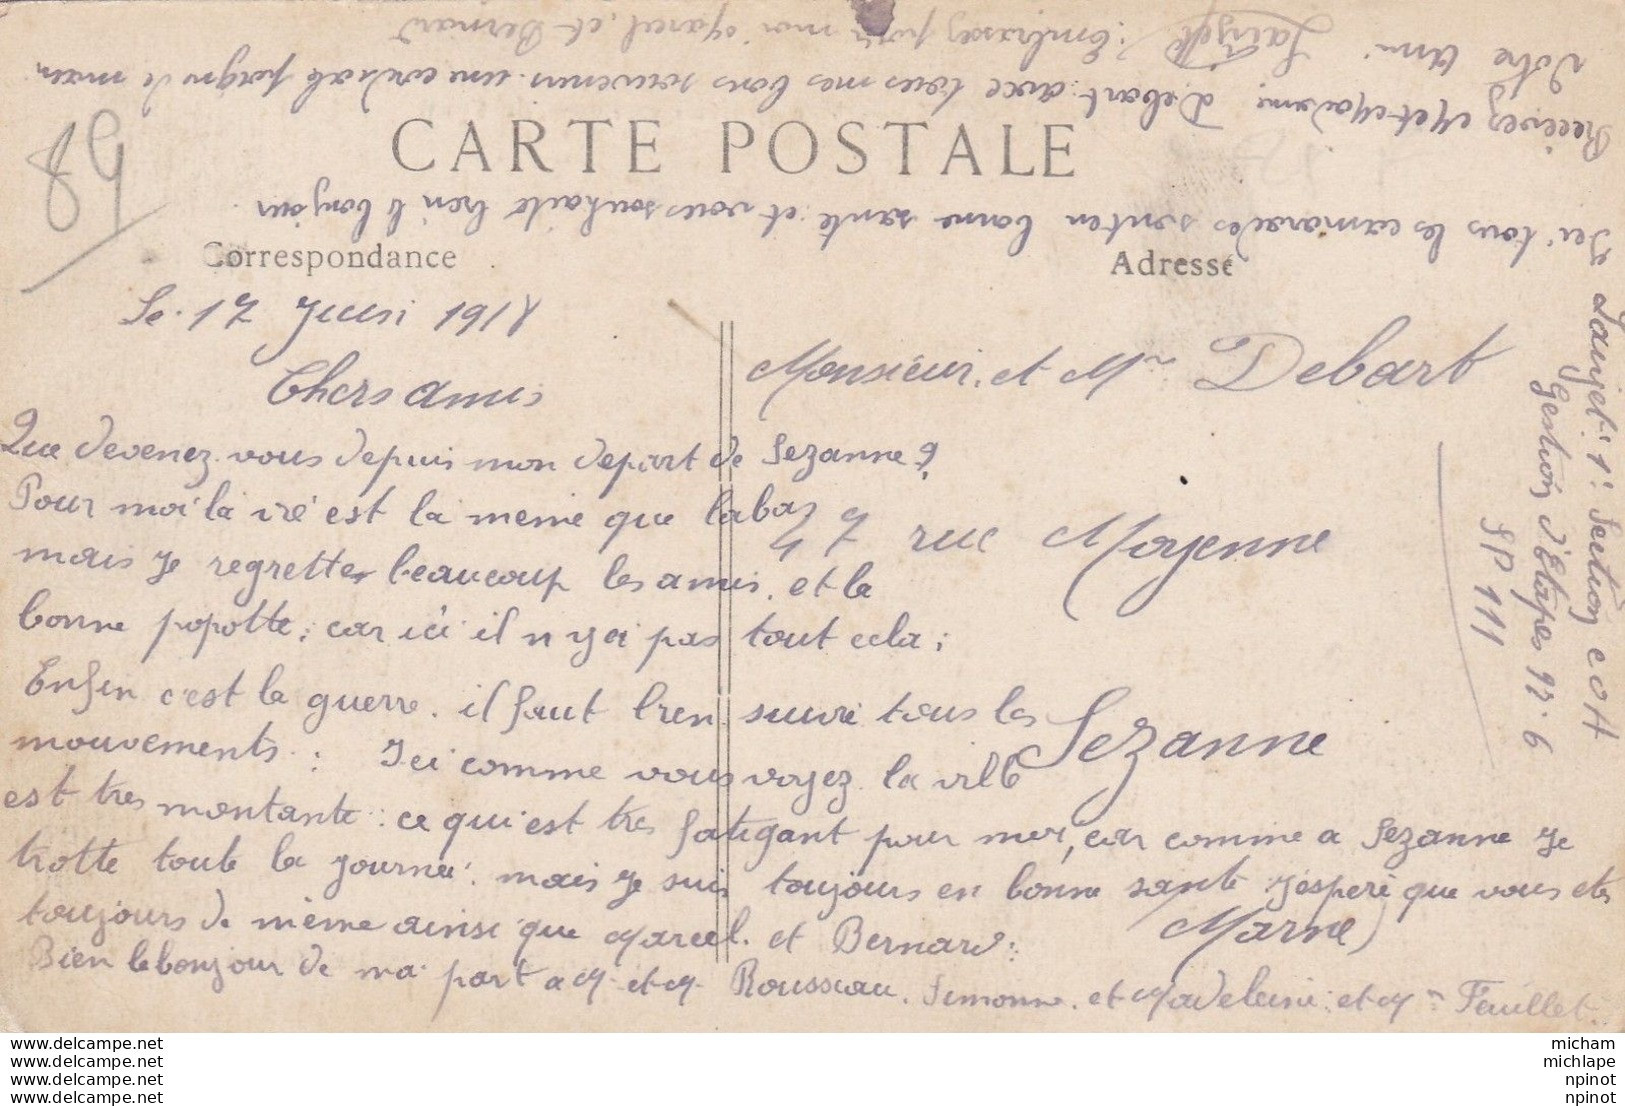 CARTE POSTALE
Correspondance
Adresse
89
Le 17 Juin 1918
Chers amis
Que devenez vous depuis mon depart de Sezanne ?
Pour moi la vie est la meme que labas
mais je regrette beaucoup les amis, et la
bonne popotte, car ici il n y a pas tout cela ;
Enfin c'est la guerre. il faut bien suivre tous les
mouvements : Ici comme vous voyez la ville
est tres montante : ce qui est tres fatigant pour moi, car comme a Sezanne je
trotte toute la journee. mais je suis toujours en bonne sante j'espere que vous etes
toujours de même ainsi que Marcel. et Bernard :
Bien le bonjour de ma part a M. et M. Rousseau. Simonne. et Madeleine. et Mme Feuillet.
Ici tous les camarades sont en bonne sante. et vous souhaite bien le bonjour.
Recivez M et Madame Debart. avec tous mes bons souvenirs. une cordiale poigne de main
Votre Ami Laujet
Embrassez pour moi Marcel, et Bernard
Monsieur. et Mme Debart
47 rue Moyenne
Sezanne
Marne)
Laujet. 1e Section C O A
Gestion d'Etapes 92.6
SP 111
www.delcampe.net
www.delcampe.net
www.delcampe.net
www.delcampe.net
micham
michlape
npinot
npinot